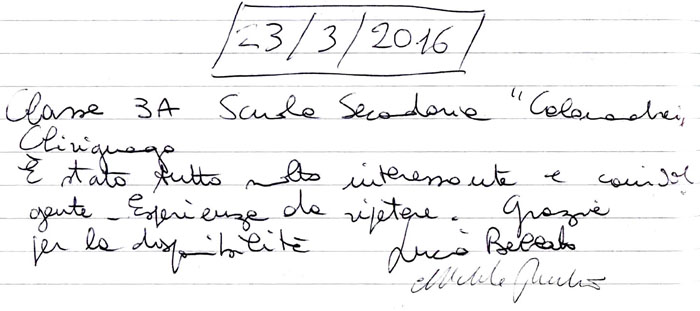 23/3/2016
Classe 3A Scuola Secondaria "Calamandrei,
Chirignago
È stato tutto molto interessante e coinvol
gente - Esperienza da ripetere. Grazie
per la disponibilità Lucio